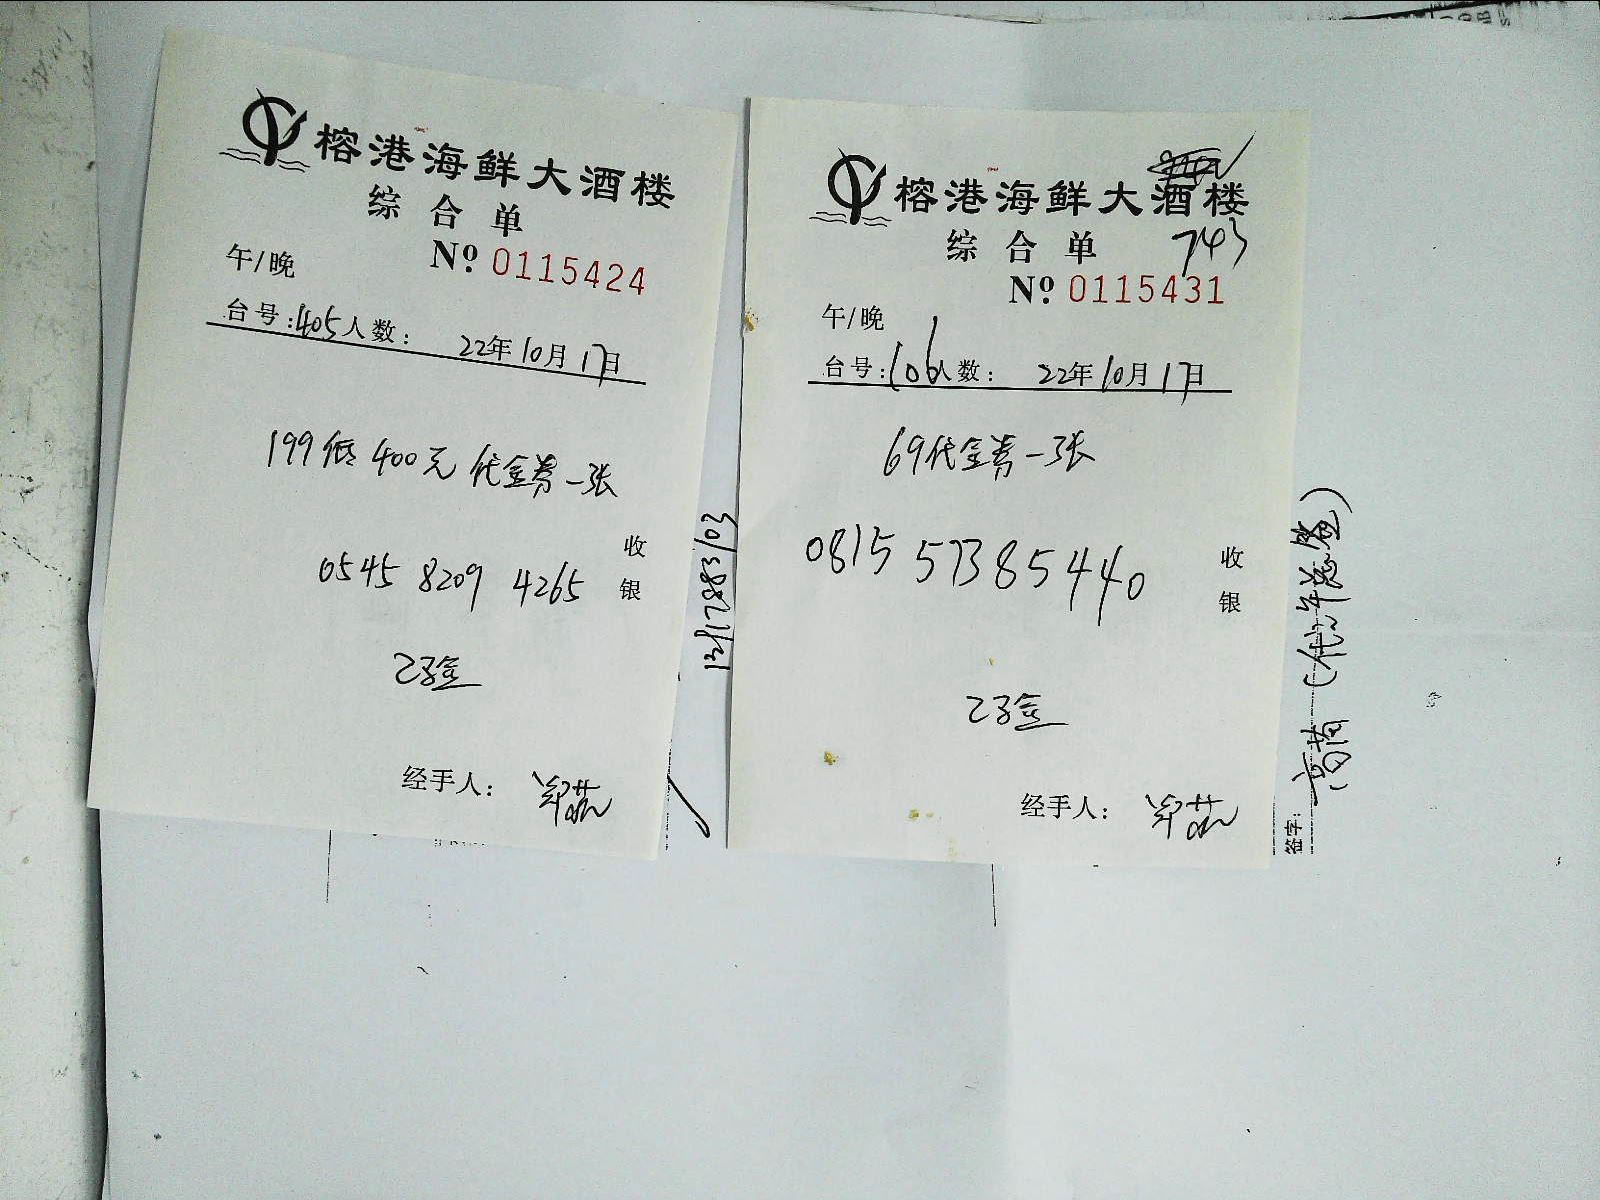 榕港海鲜大酒楼
综合单
No. 0115424
午/晚
台号:405人数: 22年10月17日
199低400元代金券一张
0545 8209 4265
收银
已验
经手人:
13/12883/03
榕港海鲜大酒楼
综合单
743
No. 0115431
午/晚
台号:106人数: 22年10月17日
69代金券一张
0815 5738 5440
收银
已验
经手人:
签字: